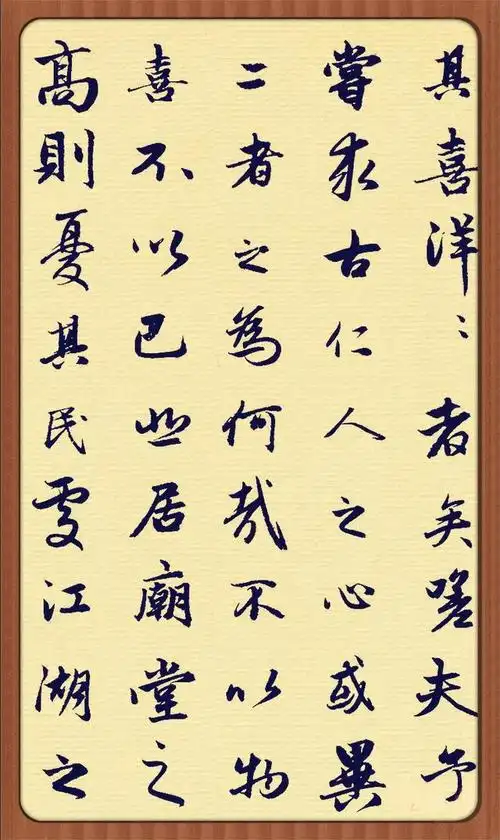 其喜洋〻者矣嗟夫予
嘗求古仁人之心或異
二者之為何哉不以物
喜不以己悲居廟堂之
高則憂其民處江湖之